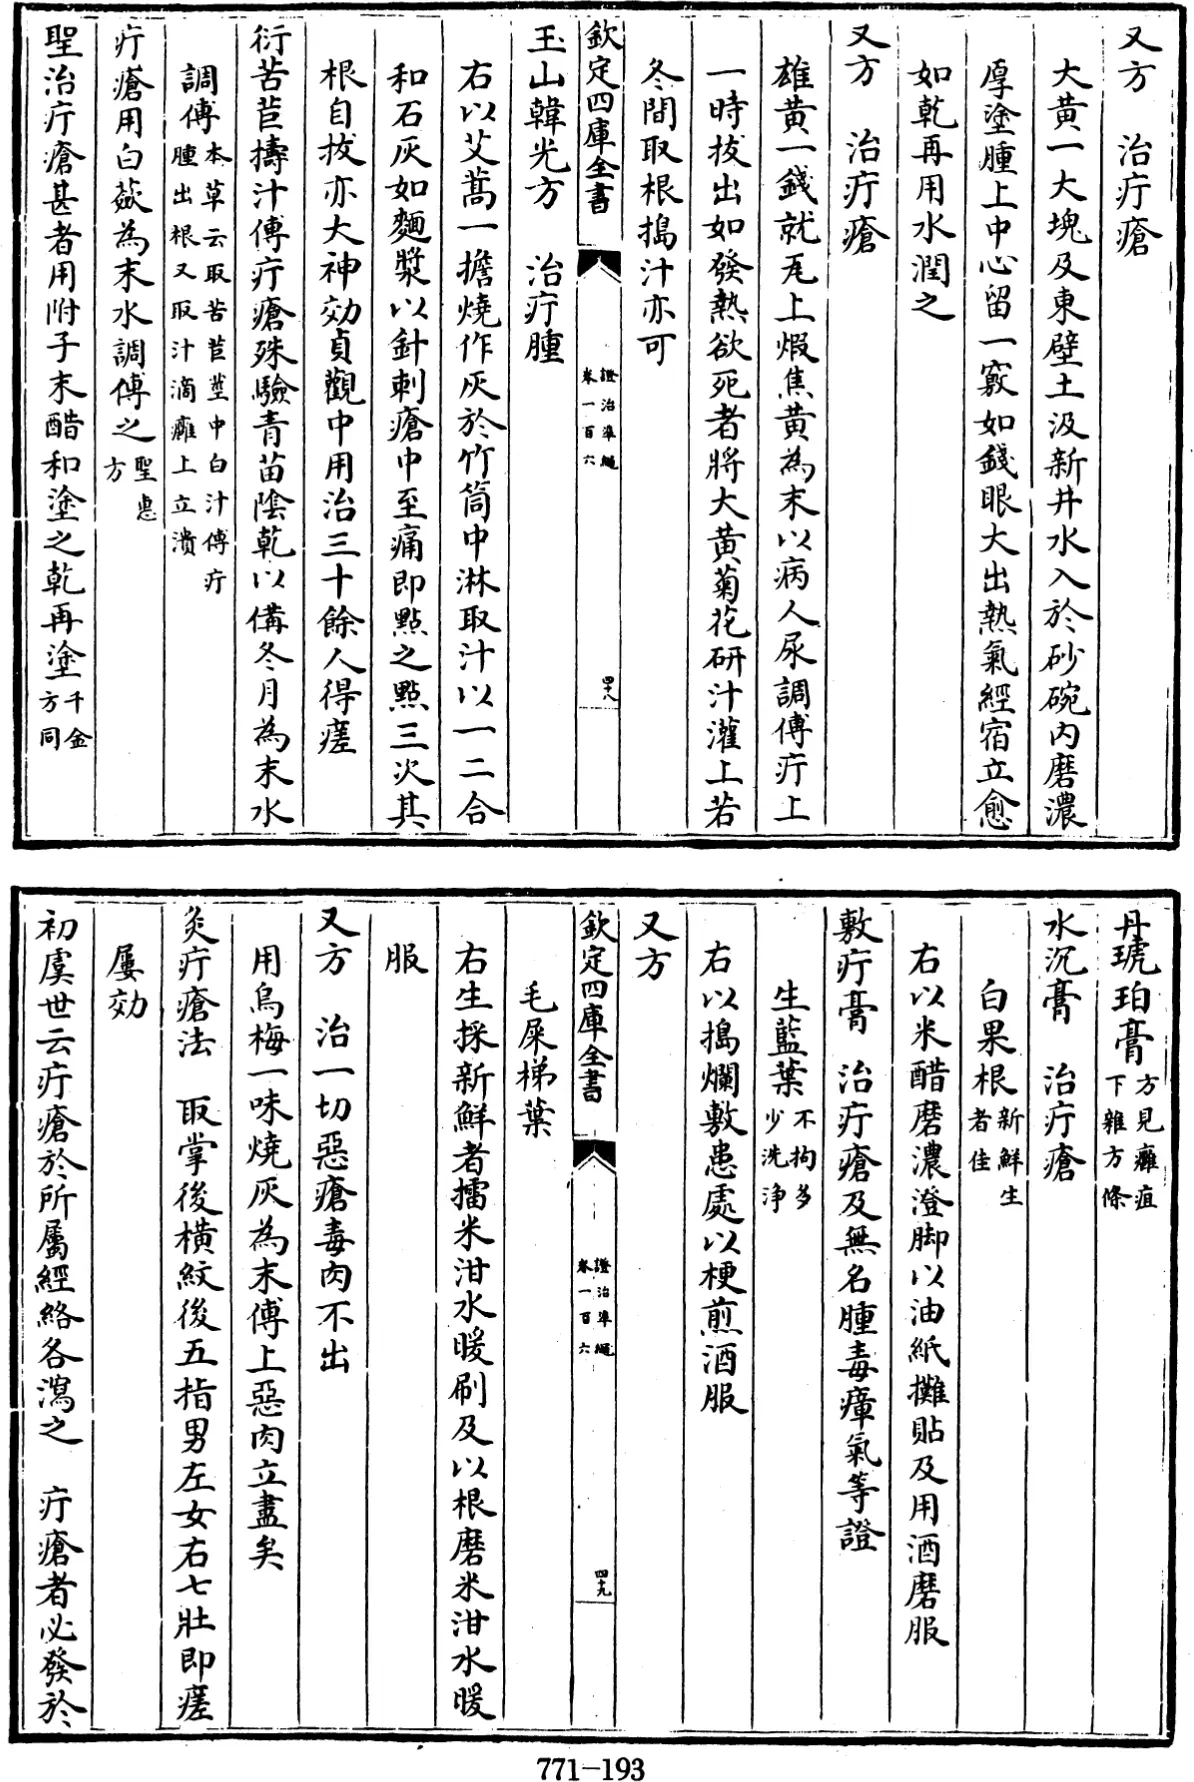 又方　治疔瘡
大黃一大塊及東壁土汲新井水入於砂碗內磨濃
厚塗腫上中心留一竅如錢眼大出熱氣經宿立愈
如乾再用水潤之
又方　治疔瘡
雄黃一錢就瓦上煅焦黃為末以病人尿調傅疔上
一時拔出如發熱欲死者將大黃菊花研汁灌上若
冬間取根搗汁亦可
欽定四庫全書
證治準繩
卷一百六
四十八
玉山韓光方　治疔腫
右以艾蒿一擔燒作灰於竹筒中淋取汁以一二合
和石灰如麵漿以針刺瘡中至痛即點之點三次其
根自拔亦大神効貞觀中用治三十餘人得瘥
衍苦苣擣汁傅疔瘡殊驗青苗陰乾以備冬月為末水
調傅本草云取苦苣莖中白汁傅疔
腫出根又取汁滴癰上立潰
疔瘡用白蘞為末水調傅之聖惠
方
聖治疔瘡甚者用附子末醋和塗之乾再塗千金
方同
丹琥珀膏方見癰疽
下雜方條
水沉膏　治疔瘡
白果根新鮮生
者佳
右以米醋磨濃澄脚以油紙攤貼及用酒磨服
敷疔膏　治疔瘡及無名腫毒瘴氣等證
生藍葉不拘多
少洗淨
右以搗爛敷患處以梗煎酒服
又方
欽定四庫全書
證治準繩
卷一百六
四十九
毛屎梯葉
右生採新鮮者擂米泔水暖刷及以根磨米泔水暖
服
又方　治一切惡瘡毒肉不出
用烏梅一味燒灰為末傅上惡肉立盡矣
灸疔瘡法　取掌後橫紋後五指男左女右七壯即瘥
屢効
初虞世云疔瘡於所屬經絡各瀉之　疔瘡者必發於
771-193